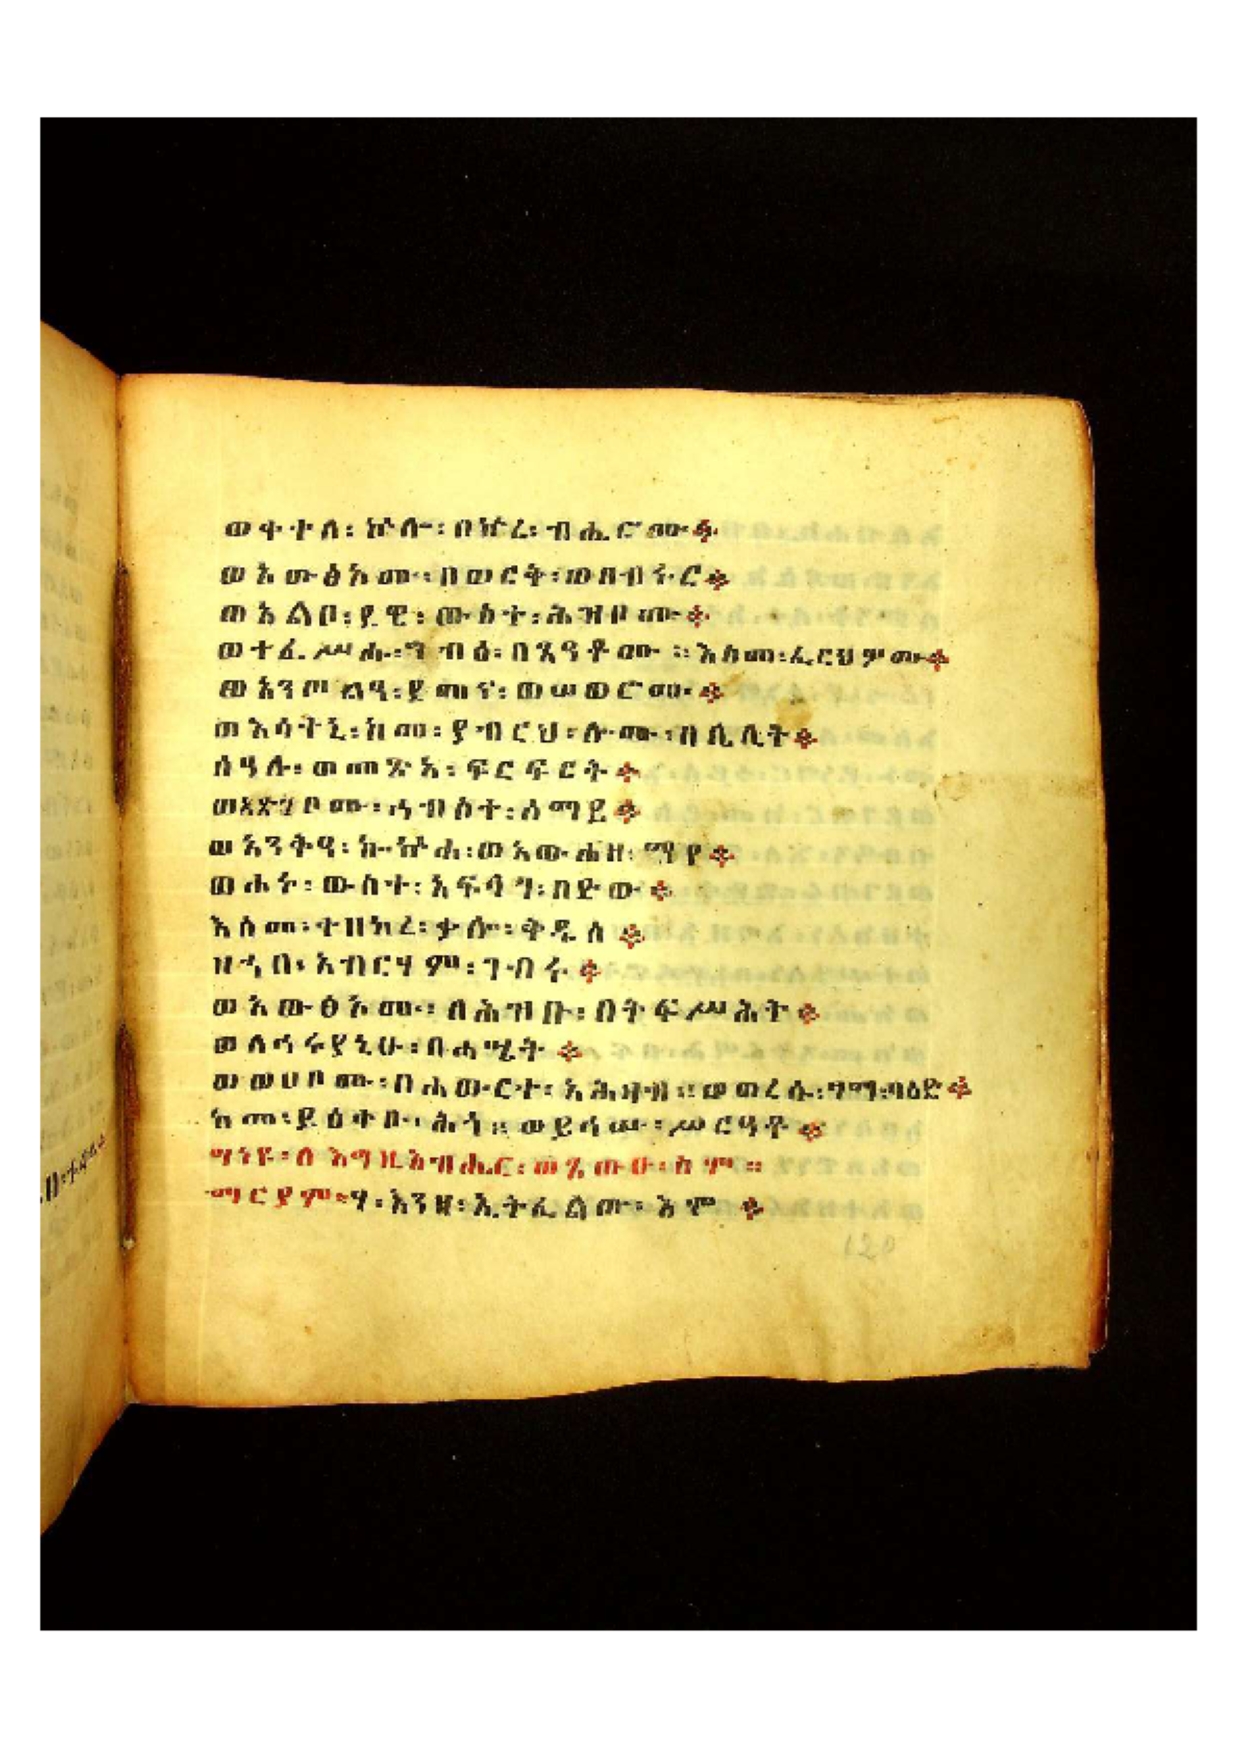 ወቀተለ፡ ኵሎ፡ በኵረ፡ ብሔሮሙ
ወአውፅአሙ፡ በወርቅ፡ ወበብሩር
ወአልቦ፡ ደዊ፡ ውስተ፡ ሕዝቦሙ
ወተፈሥሑ፡ ግብፅ፡ በፀዓቶሙ ። እስመ፡ ፈርህዎሙ
ወአንጦልዓ፡ ደመና፡ ወሠወሮሙ
ወእሳትኒ፡ ከመ፡ ያብርህ፡ ሎሙ፡ በሌሊት
ሰዓሉ፡ ወመጽአ፡ ፍርፍርት
ወአጽገቦሙ፡ ኅብስተ፡ ሰማይ
ወአንቅዓ፡ ኰኵሐ፡ ወአውሐዘ፡ ማየ
ወሖሩ፡ ውስተ፡ አፍላግ፡ በድው
እስመ፡ ተዘከረ፡ ቃሎ፡ ቅዱሰ
ዘኀበ፡ አብርሃም፡ ገብሩ
ወአውፅአሙ፡ ለሕዝቡ፡ በትፍሥሕት
ወለኅሩያኒሁ፡ በሐሤት
ወወሀቦሙ፡ በሐውርተ፡ አሕዛብ ። ወወረሱ፡ ፃማ፡ ባዕድ
ከመ፡ ይዕቀቡ፡ ሕጎ ። ወይኅሡ፡ ሥርዓቶ
ግነዩ፡ ለእግዚአብሔር፡ ወጸውዑ፡ ስም ።